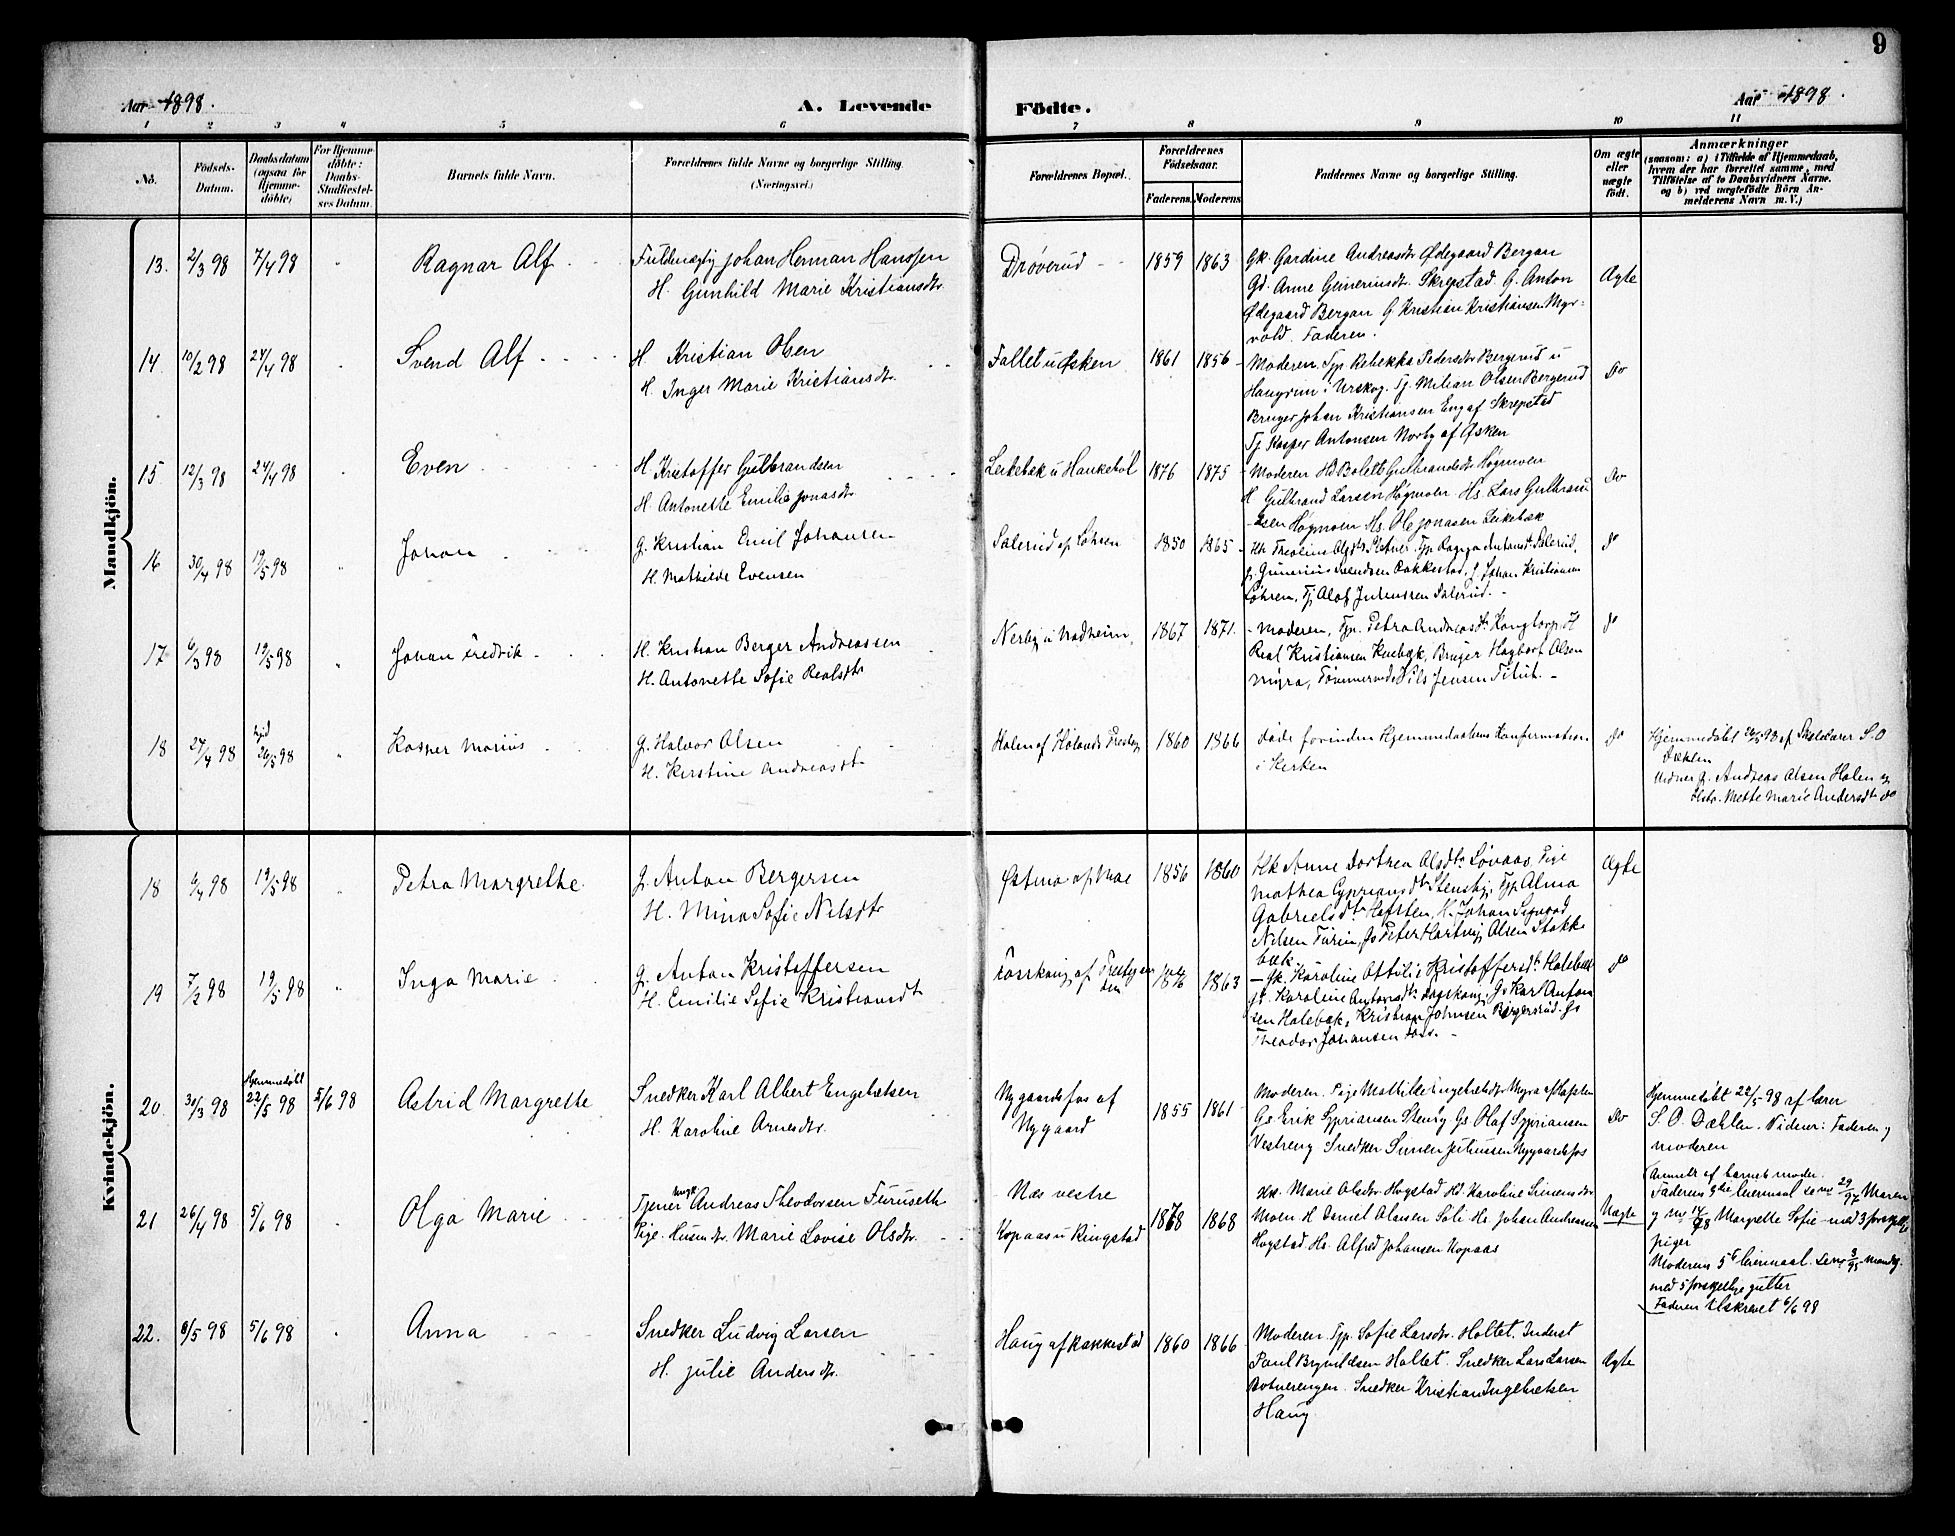 9
Aar 1898.
A. Levende
Födte.
Aar 1898.
1 2 3 4 5 6 7 8 9 10 11
No.
Födsels-Datum.
Daabsdatum (ogsaa for Hjemme-döbte)
For Hjemme-döbte: Daabs-Stadfæstel-ses Datum.
Barnets fulde Navn.
Forældrenes fulde Navne og borgerlige Stilling. (Næringsvei.)
Forældrenes Bopæl.
Forældrenes Födselsaar.
Faderens. Moderens.
Faddernes Navne og borgerlige Stilling.
Om ægte eller uægte födt.
Anmærkninger
(saasom: a) i Tilfælde af Hjemmedaab,
hvem der har forrettet samme, med
Tilföielse af to Daabsvidners Navne.
og b) ved uægtefödte Börn An-
melderens Navn m. V.)
Mandkjön.
13. 2/3 98 7/4 98 Ragnar Alf
Fuldmægtig Johan Herman Hanssen
H. Gunhild Marie Kristiansdtr.
Drøverud 1859 1863
Gk. Gardine Andreasdtr Ødegaard Bergan
Gd. Anne Skrepstad. G. Anton
Ødegaard Bergan G Kristian Kristiansen Myr-
vold. Faderen.
Ægte
14 10/2 98 24/4 98 Svend Alf
H Kristian Olsen
H. Inger Marie Kristiansdtr.
Fallet u Asken 1861 1856
Moderen Tp Rebekka Pedersdtr Bergerud u
Hangrim i Urskog. Tj. Milian Olsen Bergerud
Bruger Johan Kristiansen Eng af Skrepstad
Tj Kasper Antonsen Norby af Asken
Do
15 12/3 98 24/4 98 Even
H. Kristoffer Gulbrandsen
H. Antonette Emilie Jonasdtr
Leikebæk u Hankebøl 1876 1875
Moderen Hd Bolette Gulbrandsdtr Høgmoen
H Gulbrand Larsen Høgmoen Hs. Lars Gulbran
-dsen Høgmoen Hs. Ole Jonasen Leikebæk
Do
16 30/4 98 19/5 98 Johan
G. Kristian Emil Johansen
H. Mathilde Evensen
Salerud af Løhren 1850 1865
Olsdtr Sletner Tp Antonsdt Salerud,
G. Gunerius Rakkestad, G. Johan Kristiansen
Løhren, Tj Olaf Salerud.
do
17 6/3 98 19/5 98 Johan Fredrik
H. Kristian Berger Andreassen
H. Antonette Sofie Realsdtr
Nerby u Nadheim 1867 1871.
Moderen, Tp. Petra Andreasdt Kongtorp. H
Real Kristiansen, Bruger Hagbart Olsen
Myra, Nils Jensen
do
18 24/4 98 26/5 98 Kasper Marius
G. Halvor Olsen
H. Kirstine Andreasdt
Holen af Hølands Prestg 1860 1866
Hjemmedaabens Konfermation
i Kirken
do
Hjemmedøbt 98 af S. O
Dæhlen
Vidner G. Andreas Olsen Holen og
Mette Marie Andersdt do
Kvindekjön.
18 6/4 98 19/5 98 Petra Margrethe
G. Anton Bergersen
H. Mina Sofie Nilsdtr
Østmo af Moe 1856 1860
Hk Anne Dorthea Olsdtr Løvaas, Pige
Mathea Cypriansdtr Stensby, Tp Alma
Gabrielsdtr Hofsten, H. Johan Sigvard
Nilsen, Gs Peter Hartvig Olsen Stokke
bæk.
Ægte
19 7/3 98 19/5 98 Inga Marie
G. Anton Kristoffersen
H. Emilie Sofie Kristiansdt
1863
Gk. Karoline Ottilie Kristoffersdt Holebæk
Karoline Antonsdt, Gs Karl Anton
sen Holebæk, Kristian Johnsen Gs
Theodor Johansen Foss.
do
20 30/3 98 Hjemmedøbt 22/5 98 5/6 98 Astrid Margrethe
Snedker Karl Albert Engebretsen
H. Karoline Arnesdtr.
Nygaardsfos af
Nygaard
1855 1861
Moderen. Pige Mathilde Ingebretsdtr Myra af Hofsten
Gs. Erik Sypriansen Stensby Gs Olaf Sypriansen
Vestreng Snedker Simen Juliussen Nygaardsfos
Do
Hjemmedøbt 22/5 98 af lærer
S. O. Dæhlen. Vidner: Faderen og
moderen
21 26/4 98 5/6 98 Olga Marie
Tjener Ungk Andreas Theodorsen Furuseth
Pige. Husmdtr. Marie Lovise Olsdtr.
Næs vestre
Kopaas u Ringstad
1878 1868
Hk. Marie Olsdtr Hogstad Hd Karoline Simensdtr
Moen H Daniel Olausen Soli Hs. Johan Andreassen
Hogstad Hs. Alfred Johansen Kopaas
Uægte
Anmeldt af barnets moder.
Faderens leiermaal 29/97 Maren
og Margrethe Sofie med 3 forskjellige
piger
Moderens 5te leiermaal.
med 5 forskjellige gutter
Faderen tilskrevet 6/6 98
22. 8/5 98 5/6 98 Anna
Snedker Ludvig Larsen
H. Julie Andersdtr.
Haug af Rakkestad 1860 1866
Moderen. Tp. Sofie Larsdtr. Holtet. Inderst
Paul Brynildsen Holtet. Snedker Lars Larsen
Snedker Kristian Ingebretsen
Haug
Ægte